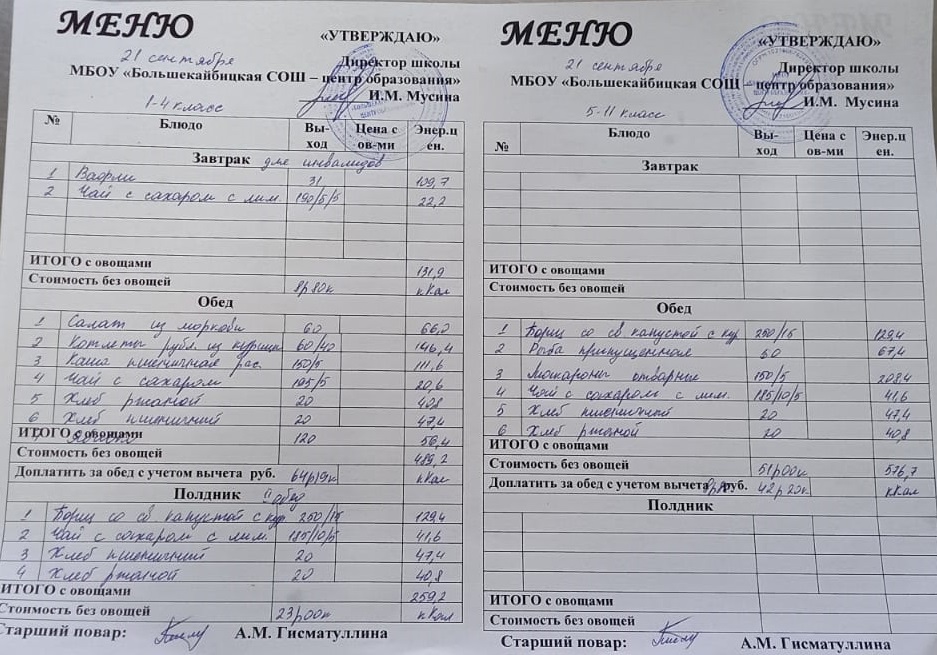 МЕНЮ
«УТВЕРЖДАЮ»
21 сентября
Директор школы
МБОУ «Большекайбицкая СОШ – центр образования»
И.М. Мусина
1-4 класс
№ Блюдо Вы-ход Цена с ов-ми Энер.цен.
Завтрак для инвалидов
1 Вафли 31 109,7
2 Чай с сахаром с лим. 190/5/5 22,2
ИТОГО с овощами 131,9
Стоимость без овощей 8р80к кКал
Обед
1 Салат из моркови 60 66,0
2 Котлеты рубл. из курицы 60/40 146,4
3 Каша пшеничная рас. 150/5 111,6
4 Чай с сахаром 195/5 20,6
5 Хлеб ржаной 20 40,8
6 Хлеб пшеничный 20 47,4
ИТОГО с овощами 120 56,4
Стоимость без овощей 489,2
Доплатить за обед с учетом вычета руб. 64р19к кКал
Полдник Обед
1 Борщ со св капустой с кур 250/15 129,4
2 Чай с сахаром с лим. 185/10/5 41,6
3 Хлеб пшеничный 20 47,4
4 Хлеб ржаной 20 40,8
ИТОГО с овощами 259,2
Стоимость без овощей 23р00к кКал
Старший повар: А.М. Гисматуллина
МЕНЮ
«УТВЕРЖДАЮ»
21 сентября
Директор школы
МБОУ «Большекайбицкая СОШ – центр образования»
И.М. Мусина
5-11 класс
№ Блюдо Вы-ход Цена с ов-ми Энер.цен.
Завтрак
ИТОГО с овощами
Стоимость без овощей
Обед
1 Борщ со св капустой с кур 250/15 129,4
2 Рыба припущенная 60 67,4
3 Макароны отварные 150/5 208,4
4 Чай с сахаром с лим. 185/10/5 41,6
5 Хлеб пшеничный 20 47,4
6 Хлеб ржаной 20 40,8
ИТОГО с овощами
Стоимость без овощей 51р00к 576,7
Доплатить за обед с учетом вычета руб. 42р20к кКал
Полдник
ИТОГО с овощами
Стоимость без овощей
Старший повар: А.М. Гисматуллина